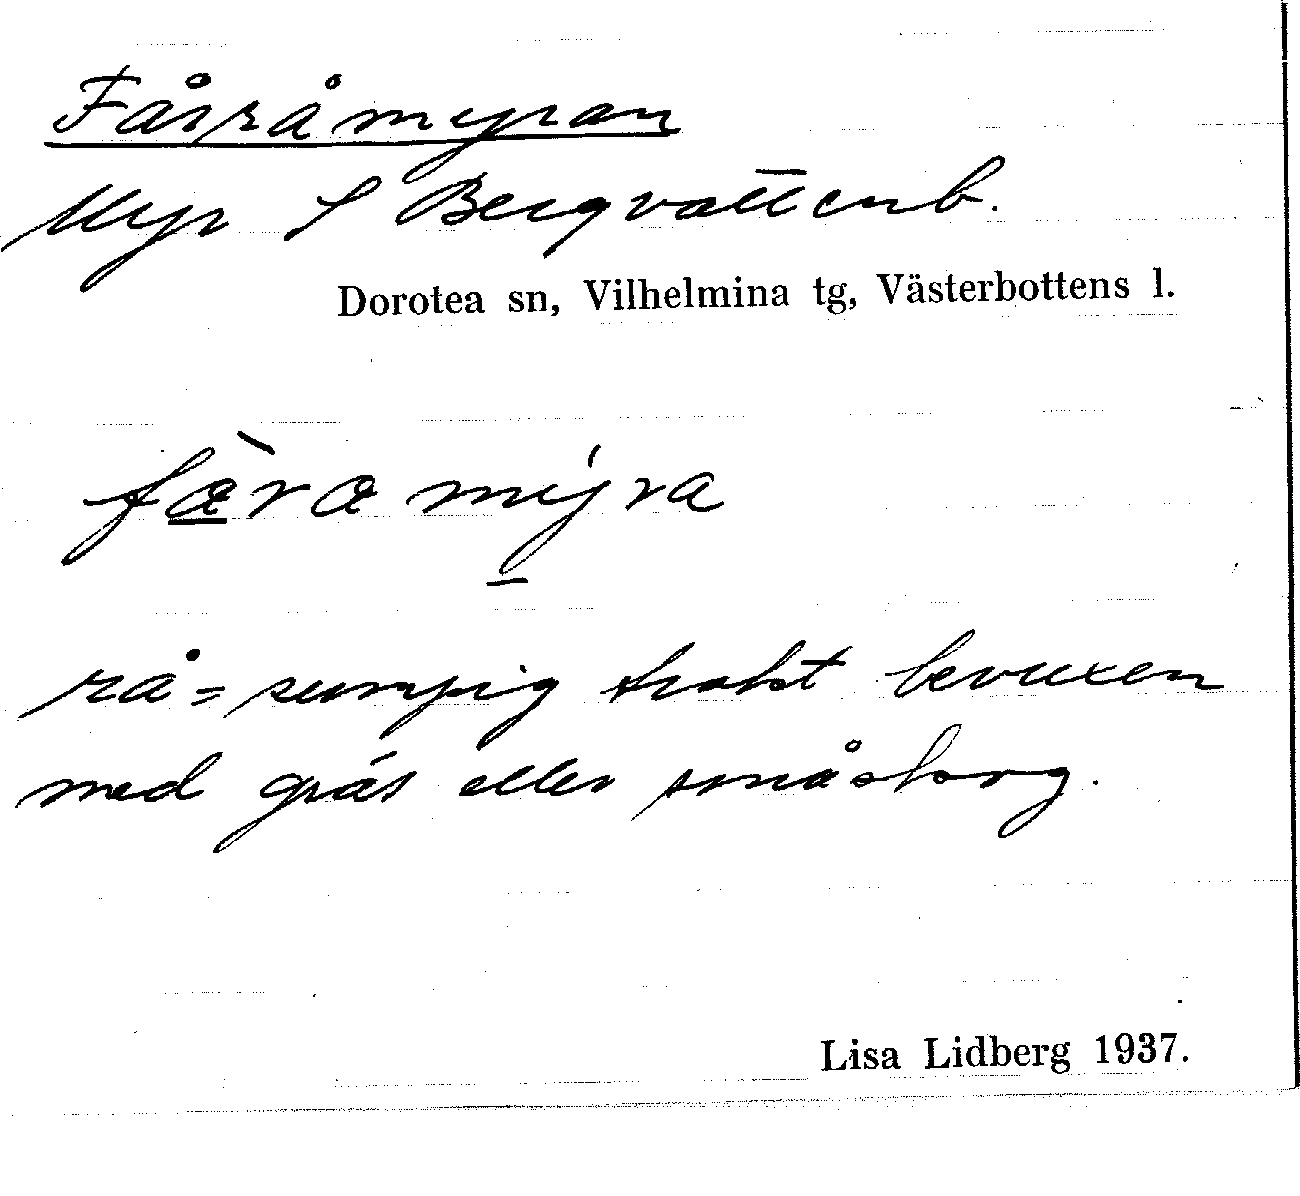 Fårråmyran
Myr S Bergvattenb.
Dorotea sn, Vilhelmina tg, Västerbottens l.
fæ̀ræ mýra
rå = sumpig trakt bevuxen
med gräs eller småskog.
Lisa Lidberg 1937.